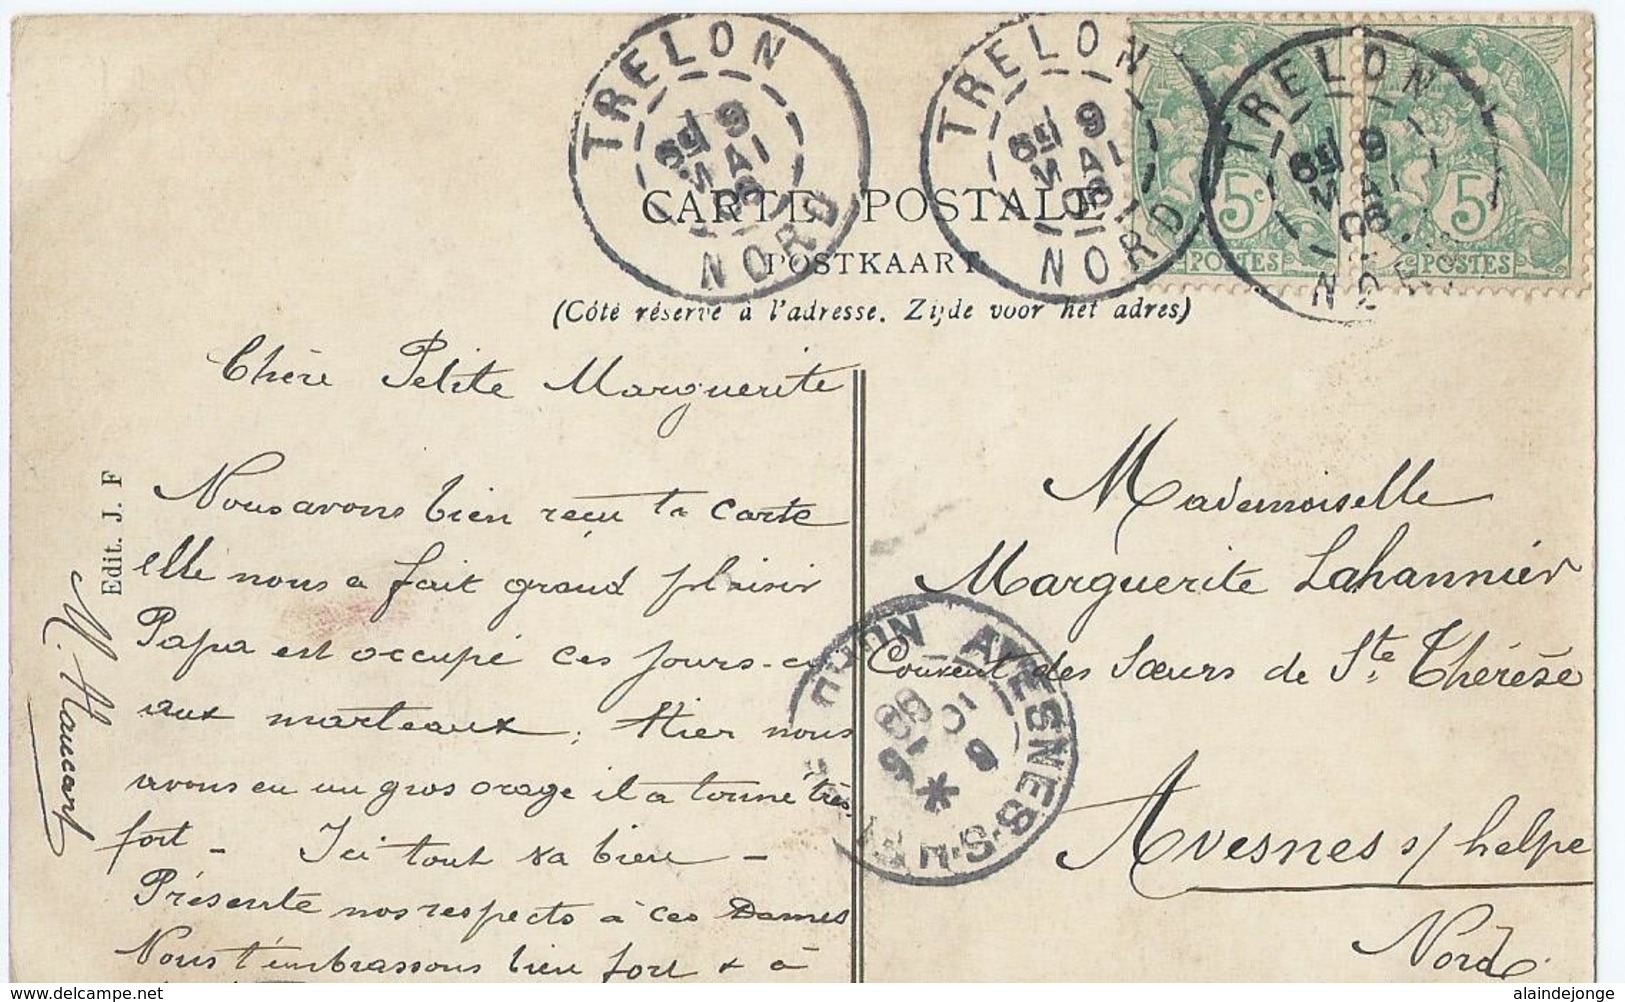 TRELON
9 MAI 06
NORD
TRELON
9 MAI 06
NORD
TRELON
9 MAI 06
NORD
5c
POSTES
5c
POSTES
CARTE POSTALE
POSTKAART
(Côté réservé à l'adresse. Zijde voor het adres)
Edit. J. F
Chère Petite Marguerite
Nous avons bien reçu ta carte
elle nous a fait grand plaisir
Papa est occupé ces jours-ci
aux marteaux ; Hier nous
avons eu un gros orage il a tonné très
fort - Ici tout va bien -
Présente nos respects à ces Dames
Nous t'embrassons bien fort & à
M. Haucart
Mademoiselle
Marguerite Lahannier
Couvent des Sœurs de Ste Thérèse
Avesnes s/ helpe
Nord
AVESNES-S-HELPE
NORD
delcampe.net
alaindejonge